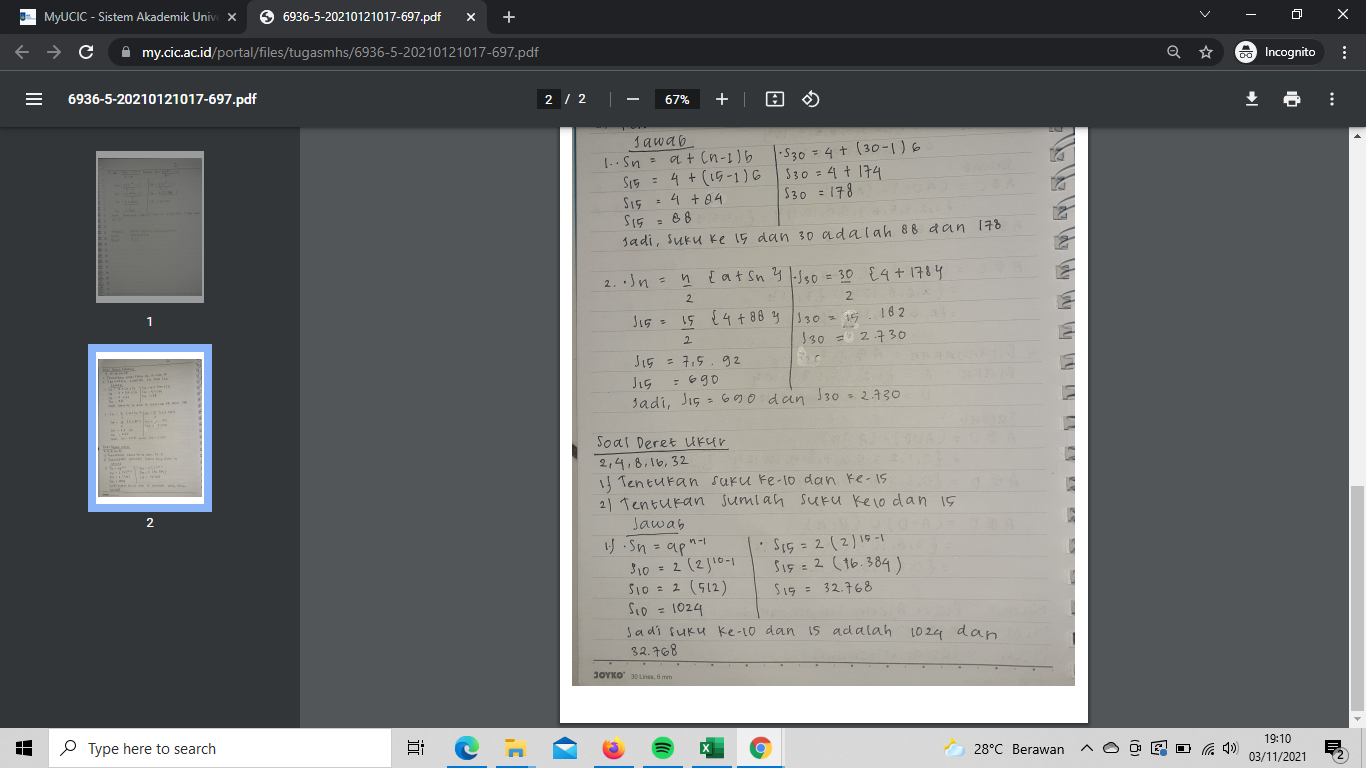 MyUCIC - Sistem Akademik Unive
6936-5-20210121017-697.pdf
my.cic.ac.id/portal/files/tugasmhs/6936-5-20210121017-697.pdf
Incognito
6936-5-20210121017-697.pdf
2 / 2
67%
1
2
Jawab
1. · Sn = a + (n-1) b
S15 = 4 + (15-1) 6
S15 = 4 + 84
S15 = 88
· S30 = 4 + (30-1) 6
S30 = 4 + 174
S30 = 178
Jadi, suku ke 15 dan 30 adalah 88 dan 178
2. · Jn = n/2 {a + Sn}
J15 = 15/2 {4 + 88}
J15 = 7,5 . 92
J15 = 690
· J30 = 30/2 {4 + 178}
J30 = 15 . 182
J30 = 2.730
Jadi, J15 = 690 dan J30 = 2.730
Soal Deret Ukur
2, 4, 8, 16, 32
1) Tentukan suku ke-10 dan ke-15
2) Tentukan Sumlah suku ke10 dan 15
Jawab
1.) · Sn = ap^n-1
S10 = 2 (2)^10-1
S10 = 2 (512)
S10 = 1024
· S15 = 2 (2)^15-1
S15 = 2 (16.384)
S15 = 32.768
Jadi suku ke-10 dan 15 adalah 1024 dan
32.768
JOYKO 30 Lines, 6 mm
Type here to search
28°C Berawan
19:10
03/11/2021
2